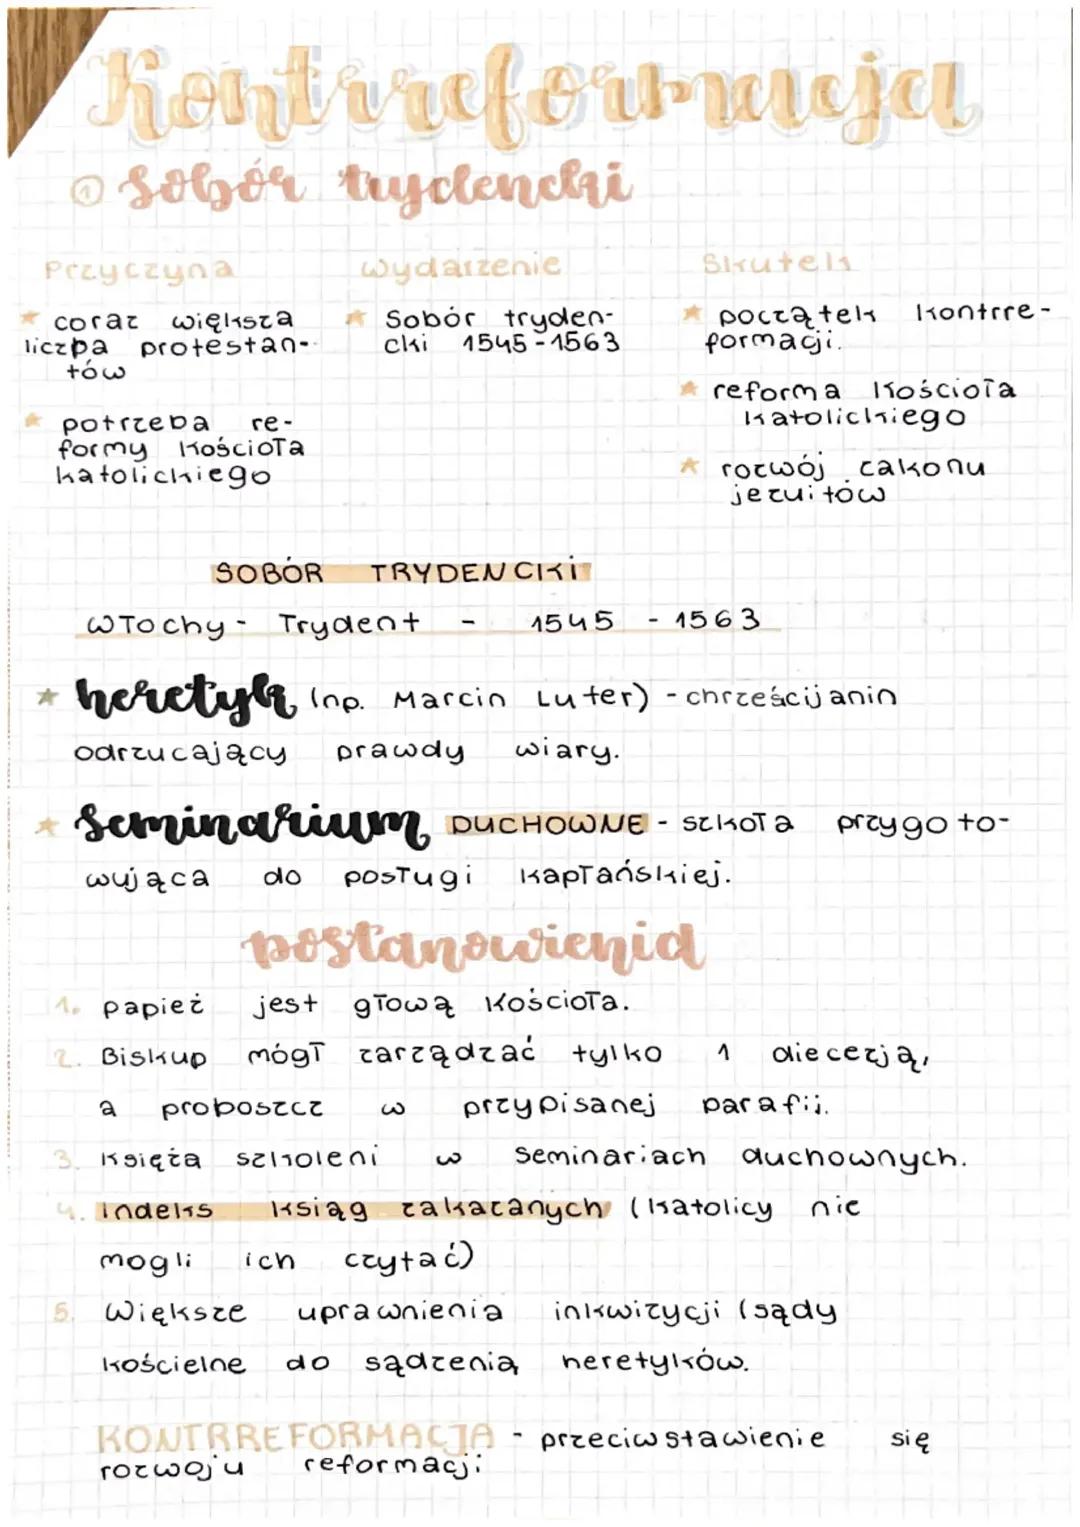 Kontrreformacja
1 Sobór trydencki
Przyczyna
coraz większa
liczba protestan-
tów
potrzeba re-
formy Kościoła
katolickiego
wydarzenie
Sobór tryden-
cki 1545-1563
Skutek
początek kontrre-
formacji.
reforma Kościoła
katolickiego
rozwój zakonu
jezuitów
SOBÓR TRYDENCKI
Włochy - Trydent - 1545 - 1563
heretyk (np. Marcin Luter) - chrześcijanin
odrzucający prawdy wiary.
Seminarium DUCHOWNE - szkoła przygoto-
wująca do posługi kapłańskiej.
postanowienia
1. papież jest głową Kościoła.
2. Biskup mógł zarządzać tylko 1 diecezją,
a proboszcz w przypisanej parafii.
3. Księża szkoleni w seminariach duchownych.
4. Indeks ksiąg zakazanych (katolicy nie
mogli ich czytać)
5. Większe uprawnienia inkwizycji (sądy
kościelne do sądzenia heretyków.
KONTRREFORMACJA - przeciwstawienie się
rozwoju reformacji